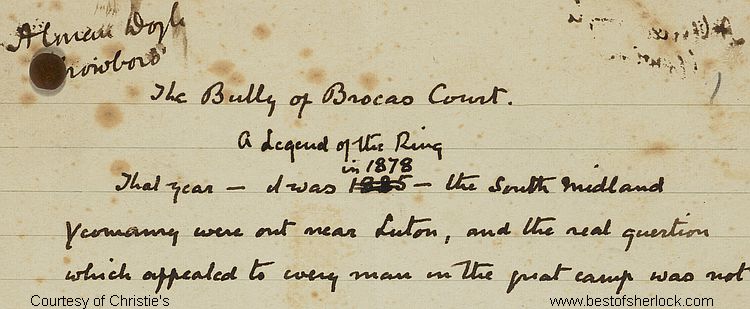 A Conan Doyle
Crowboro'
The Bully of Brocas Court.
A Legend of the Ring
in 1878
That year — it was 1885 — the South Midland
Yeomanry were out near Luton, and the real question
which appealed to every man in the great camp was not
Courtesy of Christie's
www.bestofsherlock.com